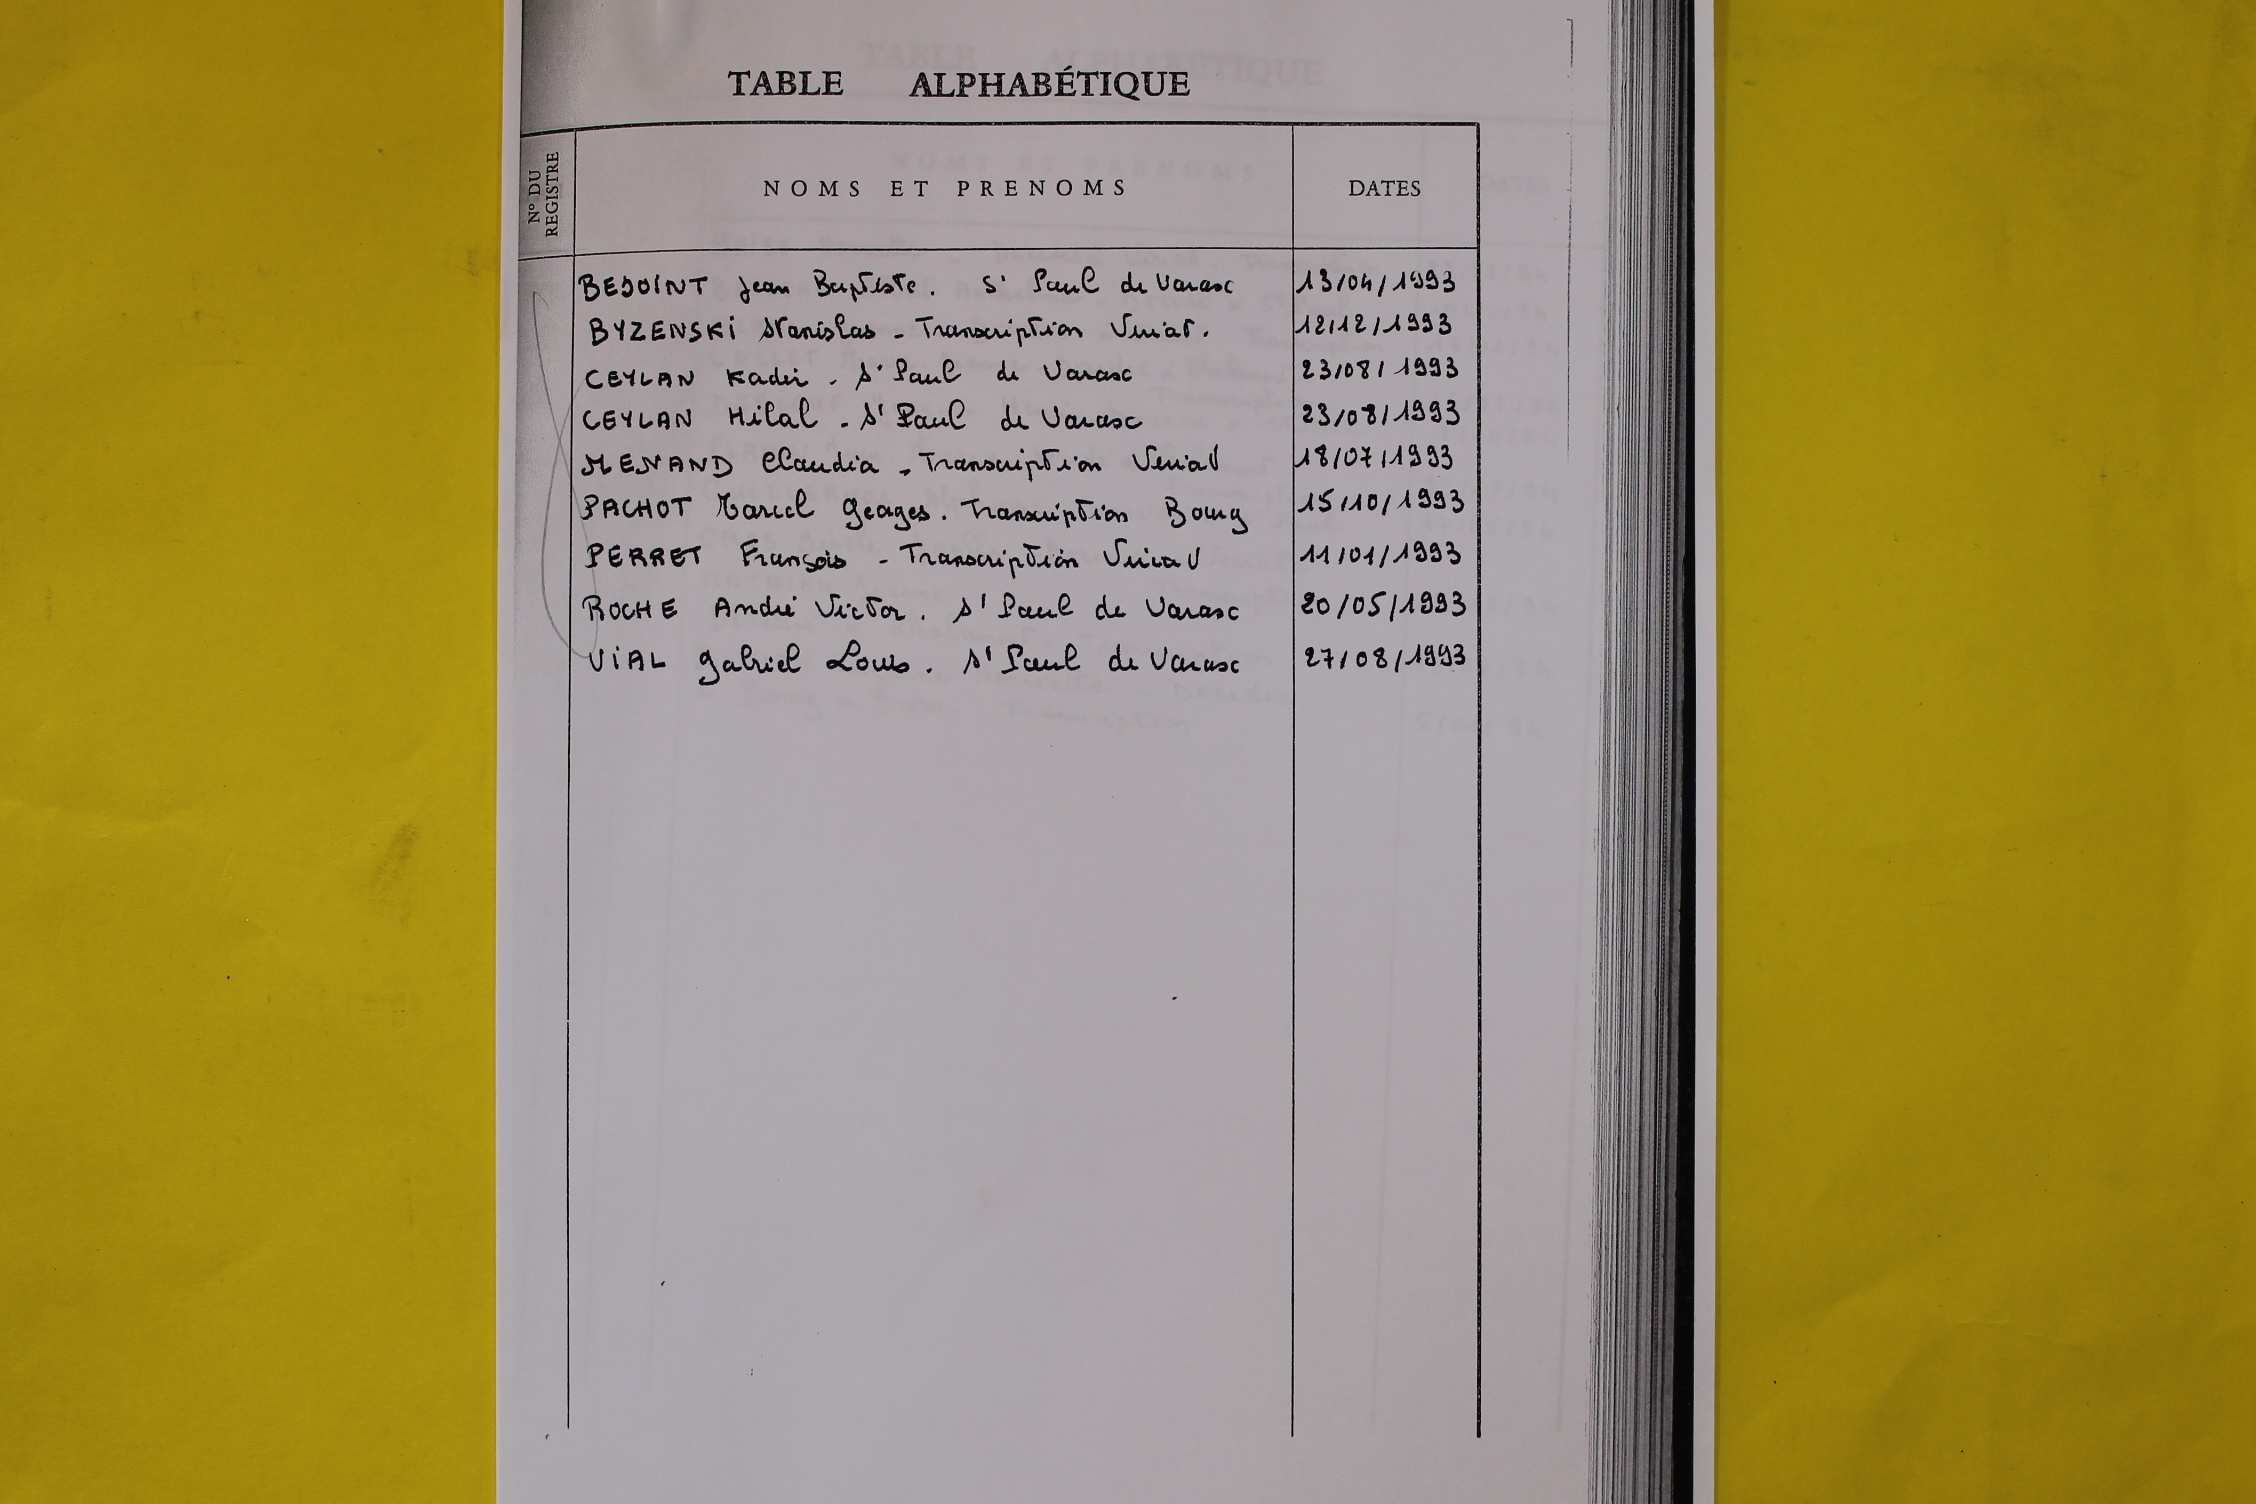 TABLE ALPHABÉTIQUE
N° DU REGISTRE
NOMS ET PRENOMS
DATES
BEJOINT Jean Baptiste. St Paul de Varasc 13/04/1993
BYZENSKi Stanislas - Transcription Viriat. 12/12/1993
CEYLAN Kadir - St Paul de Varasc 23/08/1993
CEYLAN Hilal - St Paul de Varasc 23/08/1993
MENAND Claudia - Transcription Viriat 18/07/1993
PACHOT Marcel Georges. Transcription Bourg 15/10/1993
PERRET François - Transcription Viriat 11/01/1993
ROCHE André Victor. St Paul de Varasc 20/05/1993
ViAL Gabriel Louis. St Paul de Varasc 27/08/1993